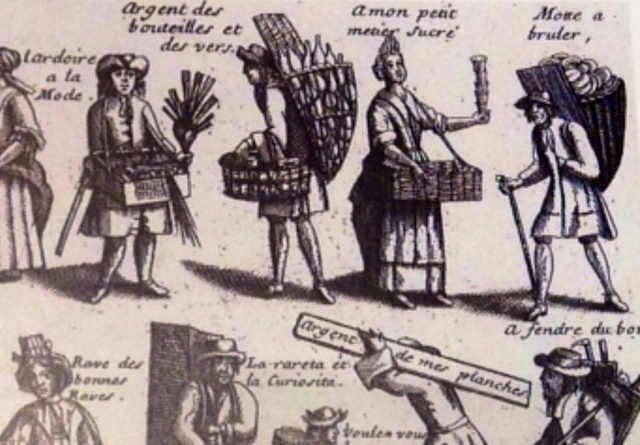 Argent des
bouteilles et
des vers.
Amon petit
metier Sucré
Motte a
bruler,
lardoire
a la
Mode.
A fendre du bo
Rave des
bonnes
Raves.
La rareta et
la Curiosita.
Argent de mes planches.
Voulez vous